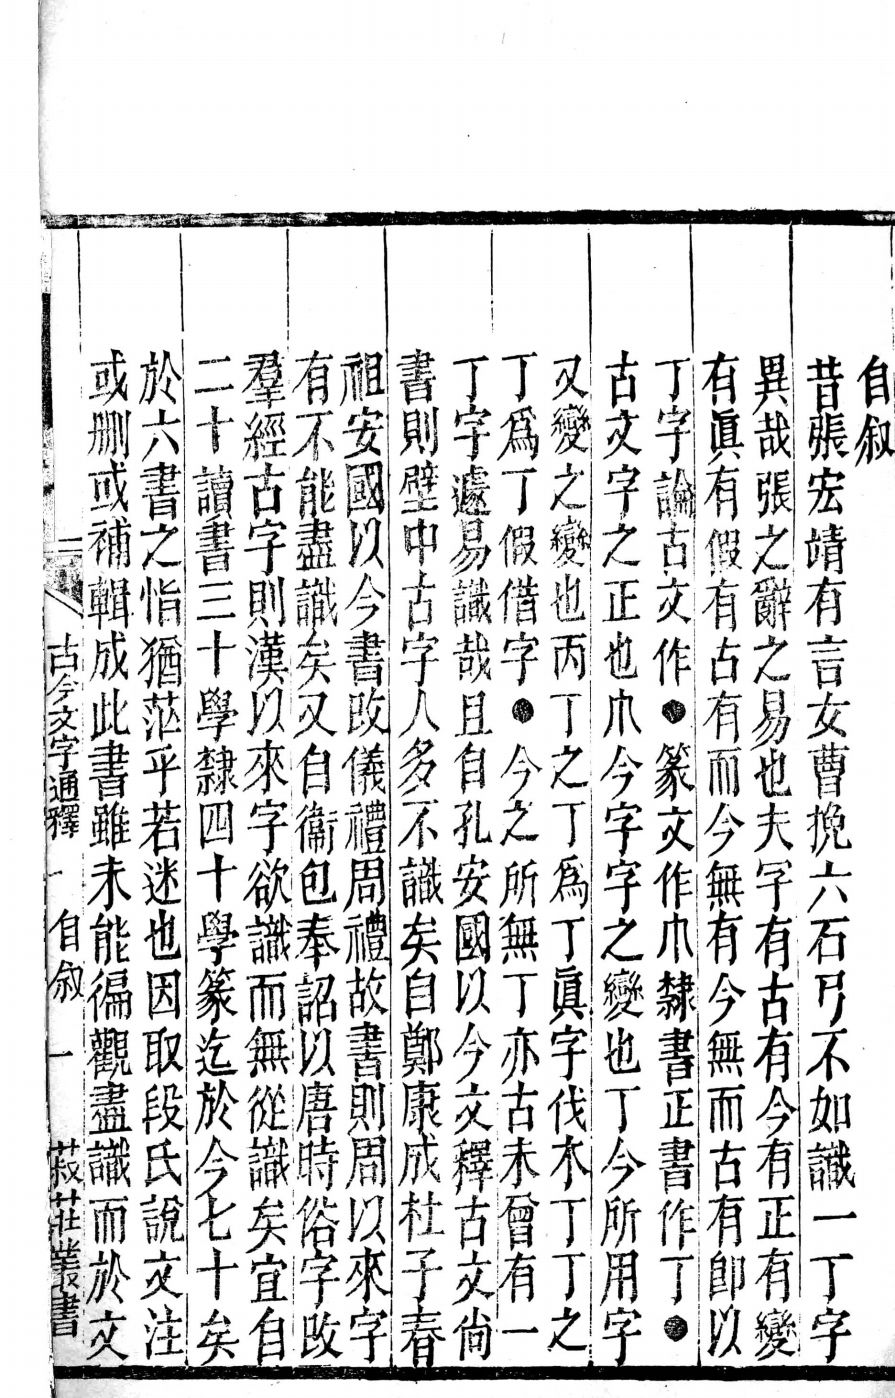 自叙
昔張宏靖有言女曹挽六石弓不如識一丁字
異哉張之辭之易也夫字有古有今有正有變
有眞有假有古有而今無有今無而古有卽以
丁字論古文作●篆文作巾隸書正書作丁●
古文字之正也巾今字字之變也丁今所用字
又變之變也丙丁之丁爲丁眞字伐木丁丁之
丁爲丁假借字●今之所無丁亦古未曾有一
丁字遽易識哉且自孔安國以今文釋古文尙
書則壁中古字人多不識矣自鄭康成杜子春
祖安國以今書改儀禮周禮故書則周以來字
有不能盡識矣又自衞包奉詔以唐時俗字改
羣經古字則漢以來字欲識而無從識矣宜自
二十讀書三十學隸四十學篆迄於今七十矣
於六書之恉猶茫乎若迷也因取段氏說文注
或刪或補輯成此書雖未能徧觀盡識而於文
古今文字通釋 自叙 一 菽莊叢書